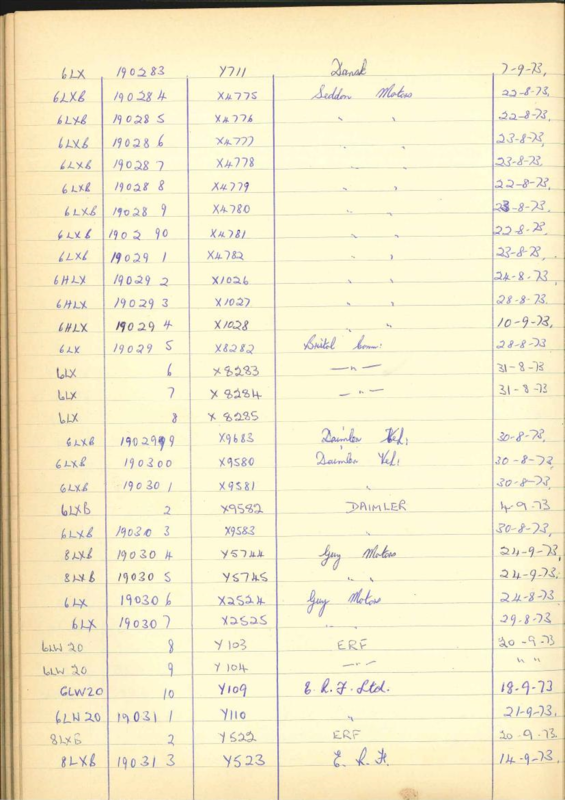 6LX 190283 Y711 Danek 7-9-73,
6LXB 190284 X4775 Seddon Motors 22-8-73,
6LXB 190285 X4776 " " 22-8-73,
6LXB 190286 X4777 23-8-73,
6LXB 190287 X4778 " " 23-8-73,
6LXB 190288 X4779 " " 22-8-73,
6LXB 190289 X4780 " " 23-8-73,
6LXB 190290 X4781 " " 22-8-73,
6LXB 190291 X4782 " " 23-8-73,
6HLX 190292 X1026 " " 24-8-73,
6HLX 190293 X1027 " " 28-8-73.
6HLX 190294 X1028 " " 10-9-73,
6LX 190295 X8282 Bristol Comm: 28-8-73
6LX 6 X8283 —"— 31-8-73
6LX 7 X8284 —"— 31-8-73
6LX 8 X8285
6LXB 190299 X9683 Daimler Veh: 30-8-73,
6LXB 190300 X9580 Daimler Veh: 30-8-73
6LXB 190301 X9581 30-8-73,
6LXB 2 X9582 DAIMLER 4-9-73
6LXB 190303 X9583 " 30-8-73,
8LXB 190304 Y5744 Guy Motors 24-9-73,
8LXB 190305 Y5745 " " 24-9-73.
6LX 190306 X2524 Guy Motors 24-8-73
6LX 190307 X2525 " " 29-8-73
6LW20 8 Y103 ERF 20-9-73
6LW20 9 Y104 —"— " "
6LW20 10 Y109 E.R.F. Ltd. 18-9-73
6LW20 190311 Y110 " 21-9-73.
8LXB 2 Y522 ERF 20-9-73
8LXB 190313 Y523 E.R.F. 14-9-73.